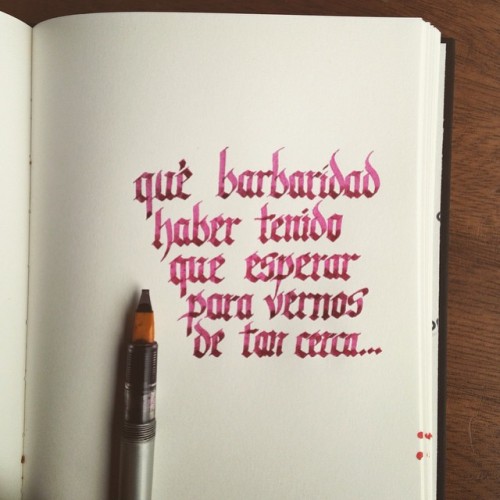 qué barbaridad
haber tenido
que esperar
para vernos
de tan cerca...